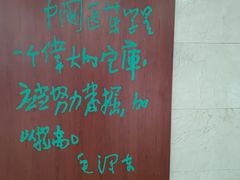 中国医药学是
一个偉大的宝庫，
应当努力發掘，加
以提高。
毛泽东